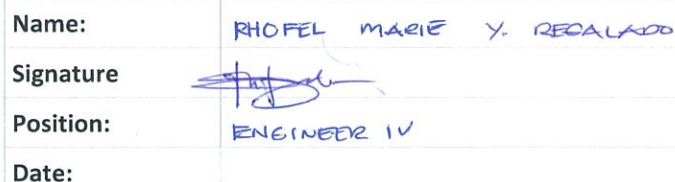 Name: RHOFEL MARIE Y. RECALADO
Signature
Position: ENGINEER IV
Date: